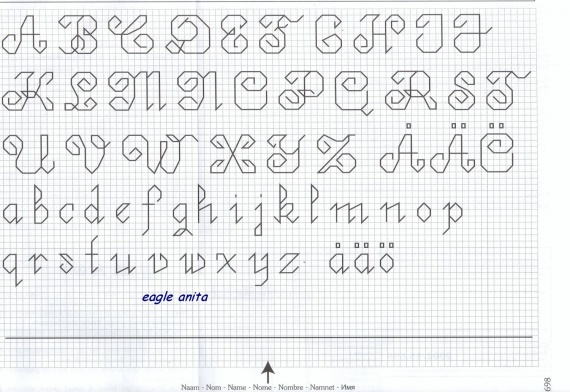 A B C D E F G H I J
K L M N O P Q R S T
U V W X Y Z Å Ä Ö
a b c d e f g h i j k l m n o p
q r s t u v w x y z å ä ö
eagle anita
Naam - Nom - Name - Nome - Nombre - Namnet - Имя
698